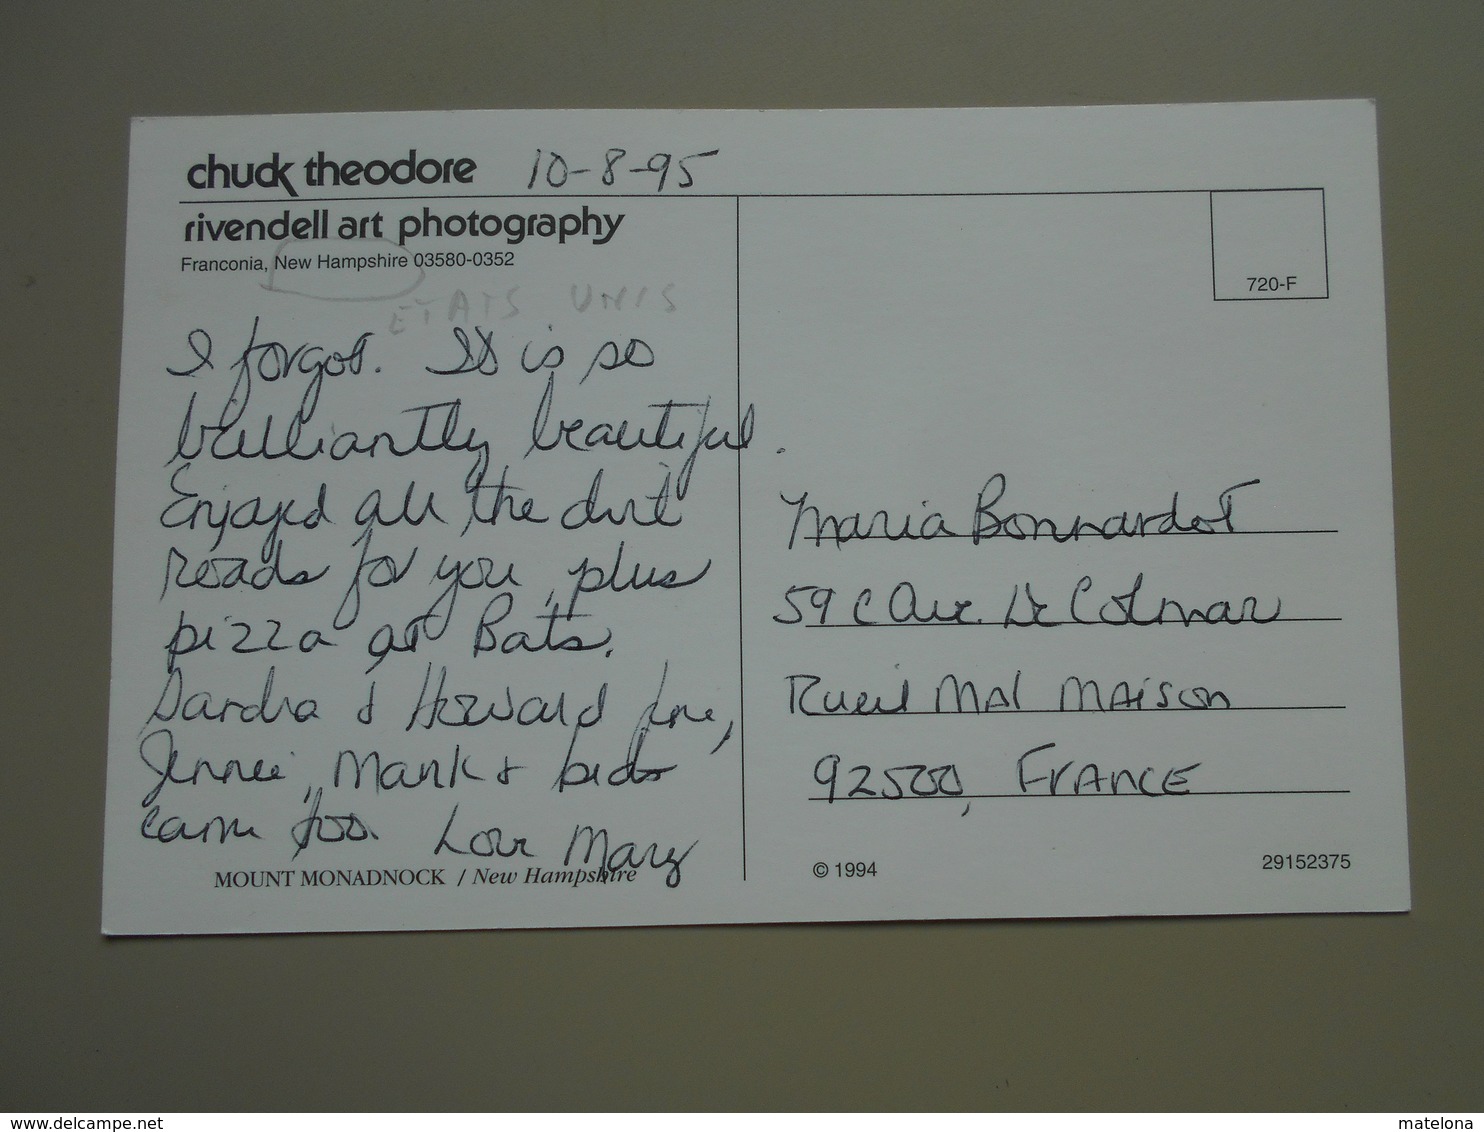 chuck theodore 10-8-95
rivendell art photography
Franconia, New Hampshire 03580-0352
ETATS UNIS
720-F
I forgot. It is so
brilliantly beautiful.
Enjoyed all the dirt
roads for you, plus
pizza at Bats.
Sandra & Howard
Jennie, Mark & kids
came too. Love Mary
MOUNT MONADNOCK / New Hampshire
Maria Bonnardot
59 C Ave. De Colmar
Rueil MAl MAison
92500, FRANCE
© 1994
29152375
www.delcampe.net
matelona